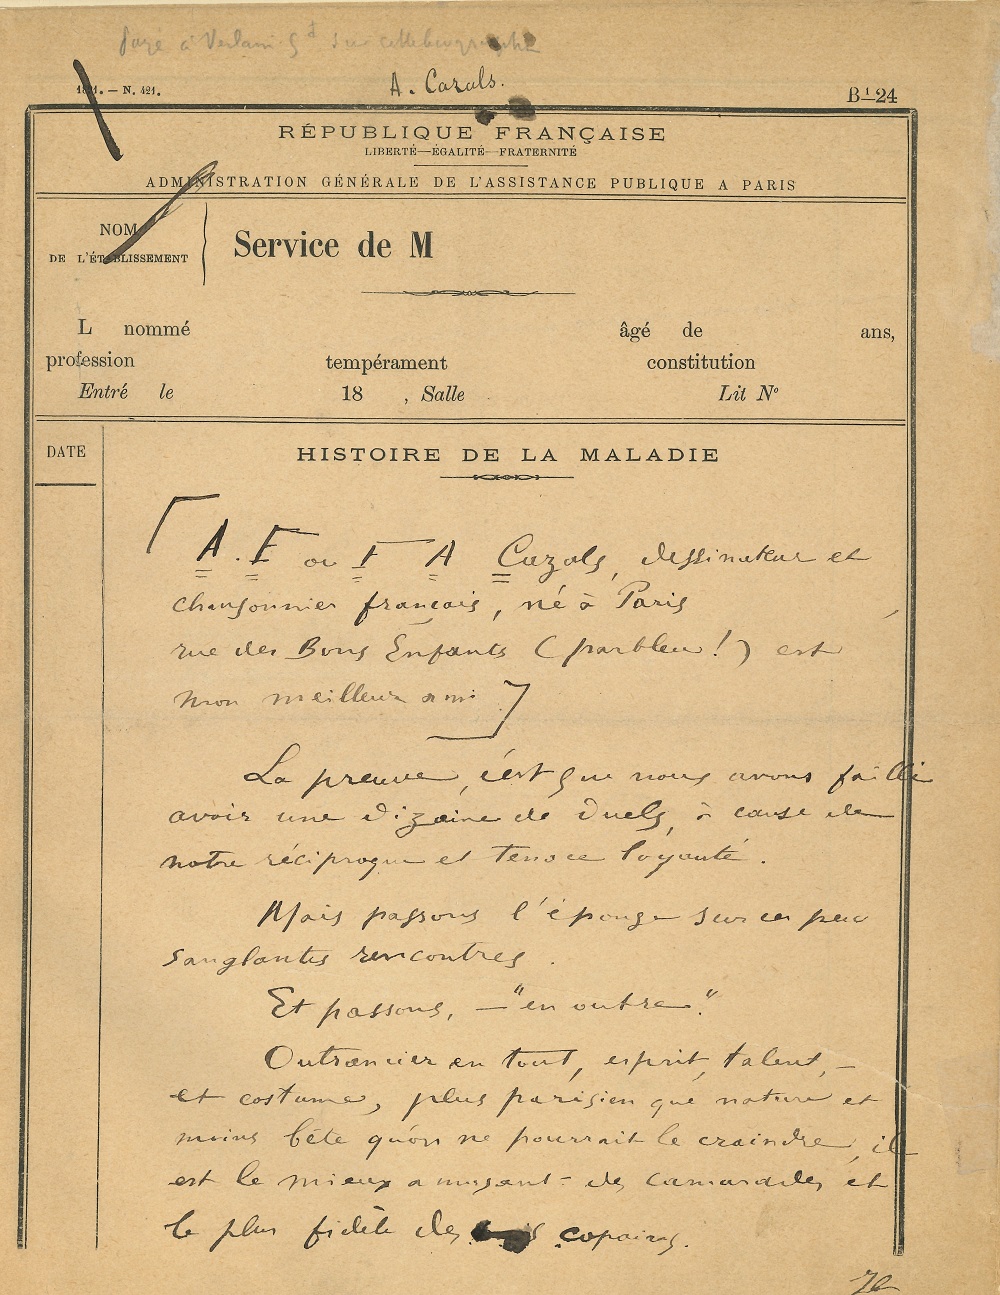 payé à Verlaine 5 d sur cette biographie
A. Cazals.
1821. — N. 421.
B¹ 24
RÉPUBLIQUE FRANÇAISE
LIBERTÉ—ÉGALITÉ—FRATERNITÉ
ADMINISTRATION GÉNÉRALE DE L'ASSISTANCE PUBLIQUE A PARIS
NOM
DE L'ÉTABLISSEMENT
Service de M
L nommé âgé de ans,
profession tempérament constitution
Entré le 18 , Salle Lit Nº
DATE
HISTOIRE DE LA MALADIE
[A. E ou F A Cazals, dessinateur et
chansonnier français, né à Paris
rue des Bons Enfants (parbleu!) est
mon meilleur ami.]
La preuve, c'est que nous avons failli
avoir une dizaine de duels, à cause de
notre réciproque et tenace loyauté.
Mais passons l'éponge sur ces peu
sanglantes rencontres.
Et passons, — "en outre".
Outrancier en tout, esprit, talent, —
et costume, plus parisien que nature et
moins bête qu'on ne pourrait le craindre, il
est le mieux amusant des camarades et
le plus fidèle des copains.
Il